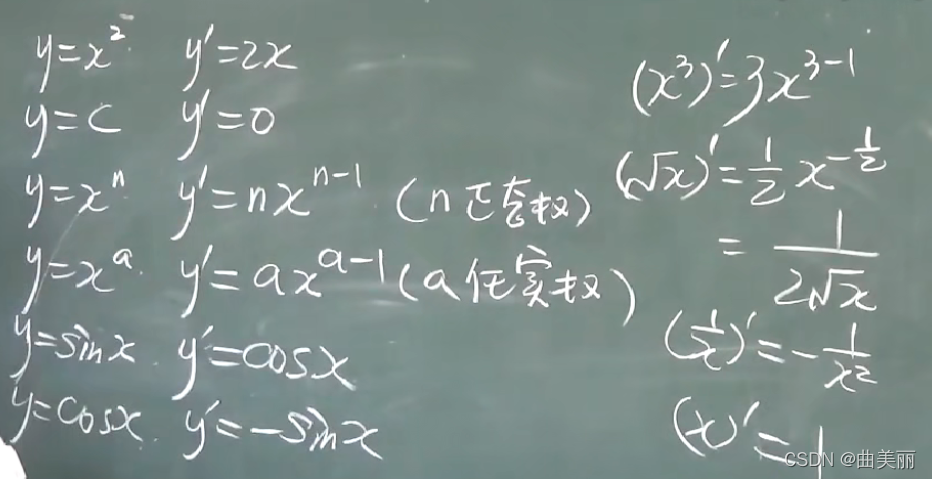 y=x² y'=2x
y=c y'=0
y=xⁿ y'=nxⁿ⁻¹ (n正整数)
y=xᵃ y'=axᵃ⁻¹ (a任实数)
y=sinx y'=cosx
y=cosx y'=-sinx
(x³)'=3x³⁻¹
(√x)'=1/2 x^(-1/2)
=1/(2√x)
(1/x)'=-1/x²
(x)'=1
CSDN @曲美丽